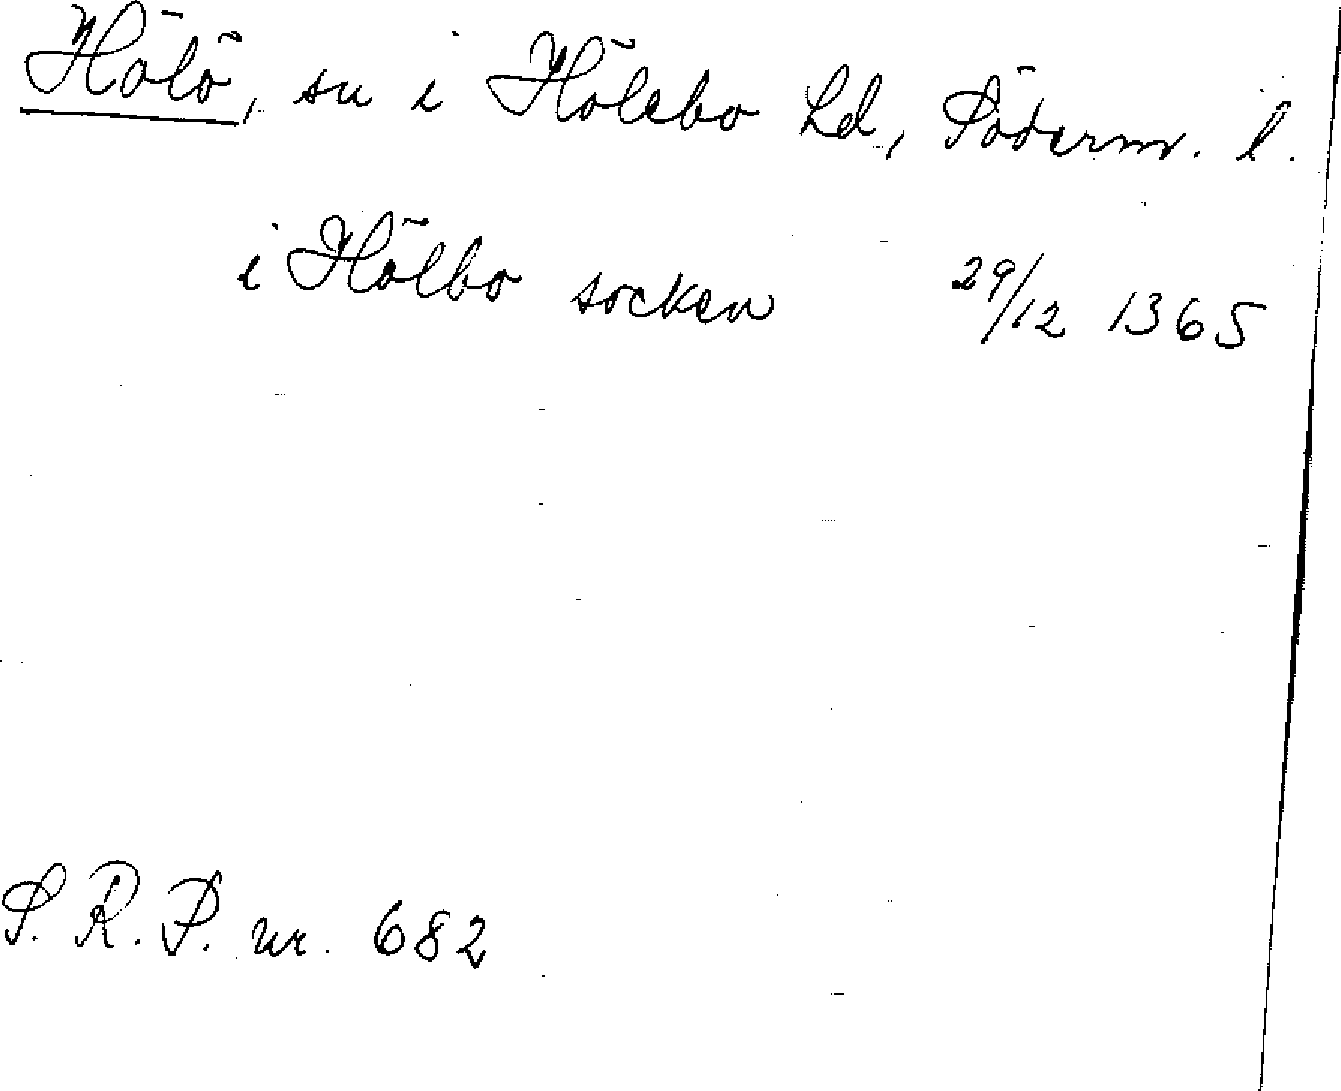 Hölö, sn i Hölebo hd, Söderm. l.
i Hölbo socken 29/12 1365
S. R. P. nr. 682